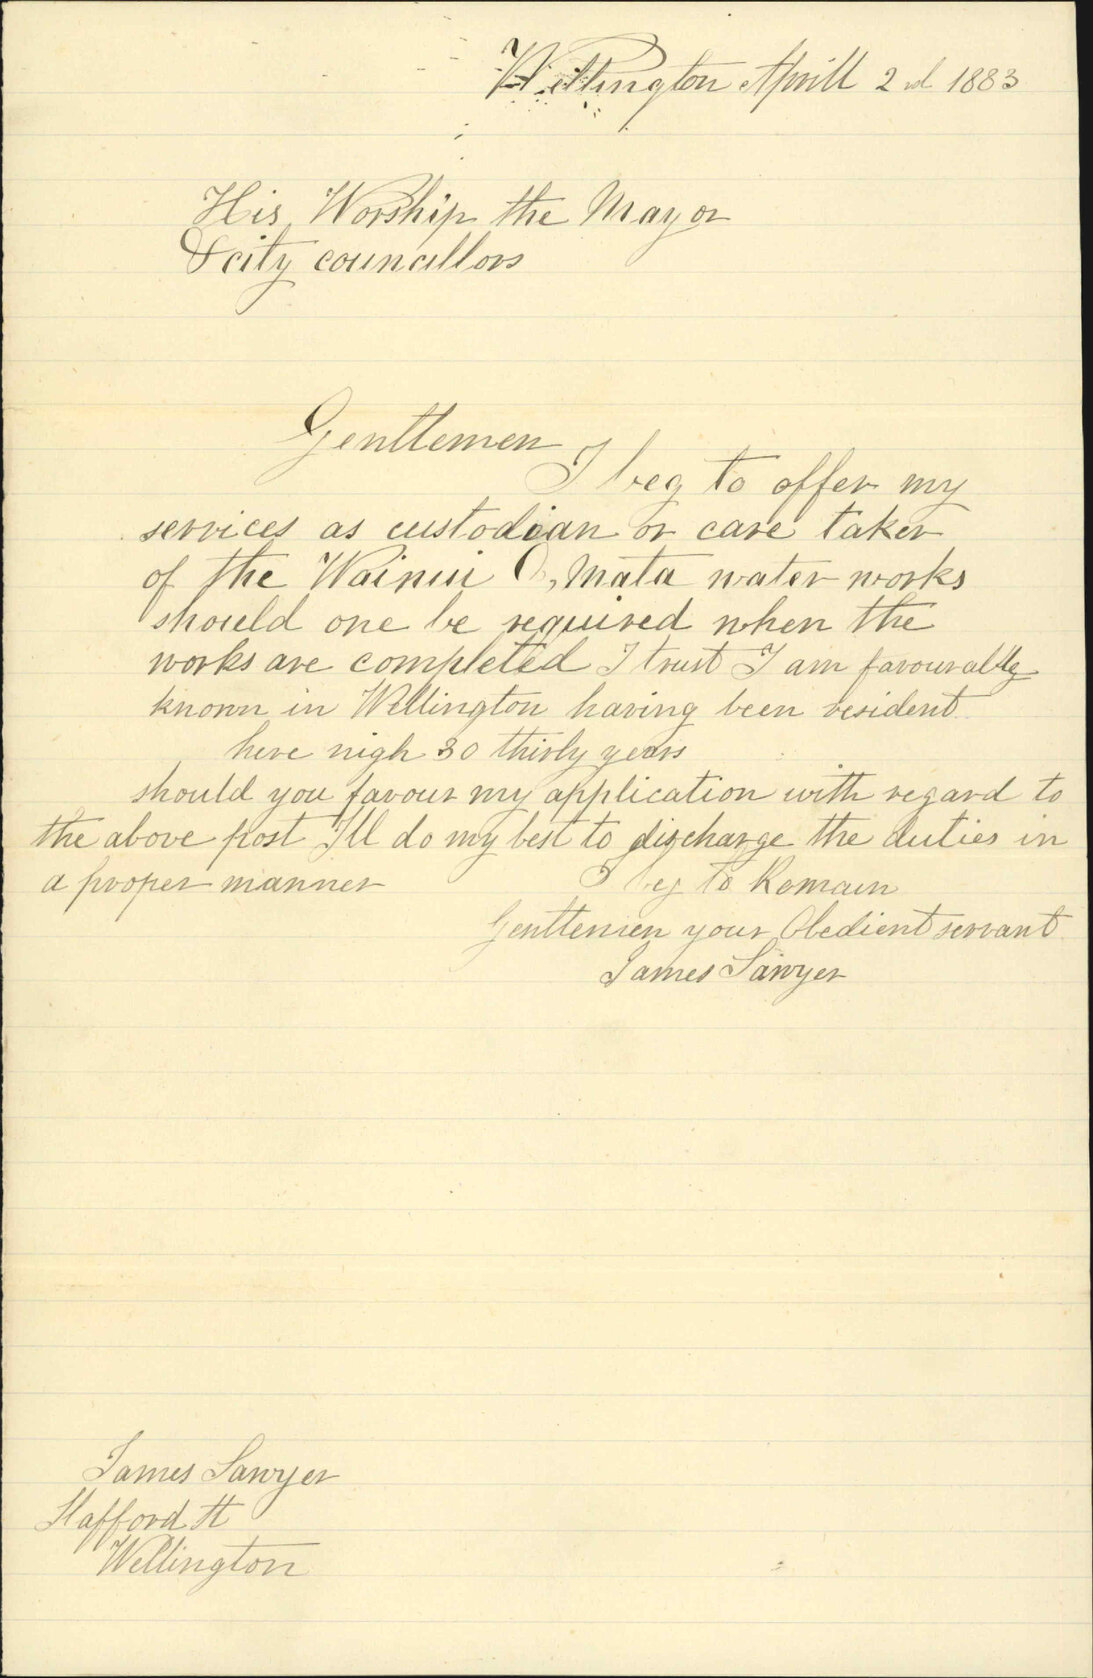 Wellington Aprill 2nd 1883
His Worship the Mayor
& city councillors
Genttlemen
I beg to offer my
services as custodian or care taker
of the Wainui O, Mata water works
should one be required when the
works are completed I trust I am favourablly
known in Wellington having been resident
here nigh 30 thirty years
should you favour my application with regard to
the above post I'll do my best to discharge the duties in
a proper manner I beg to Remain
Genttlemen your Obedient servant
James Sawyer
James Sawyer
Stafford St
Wellington